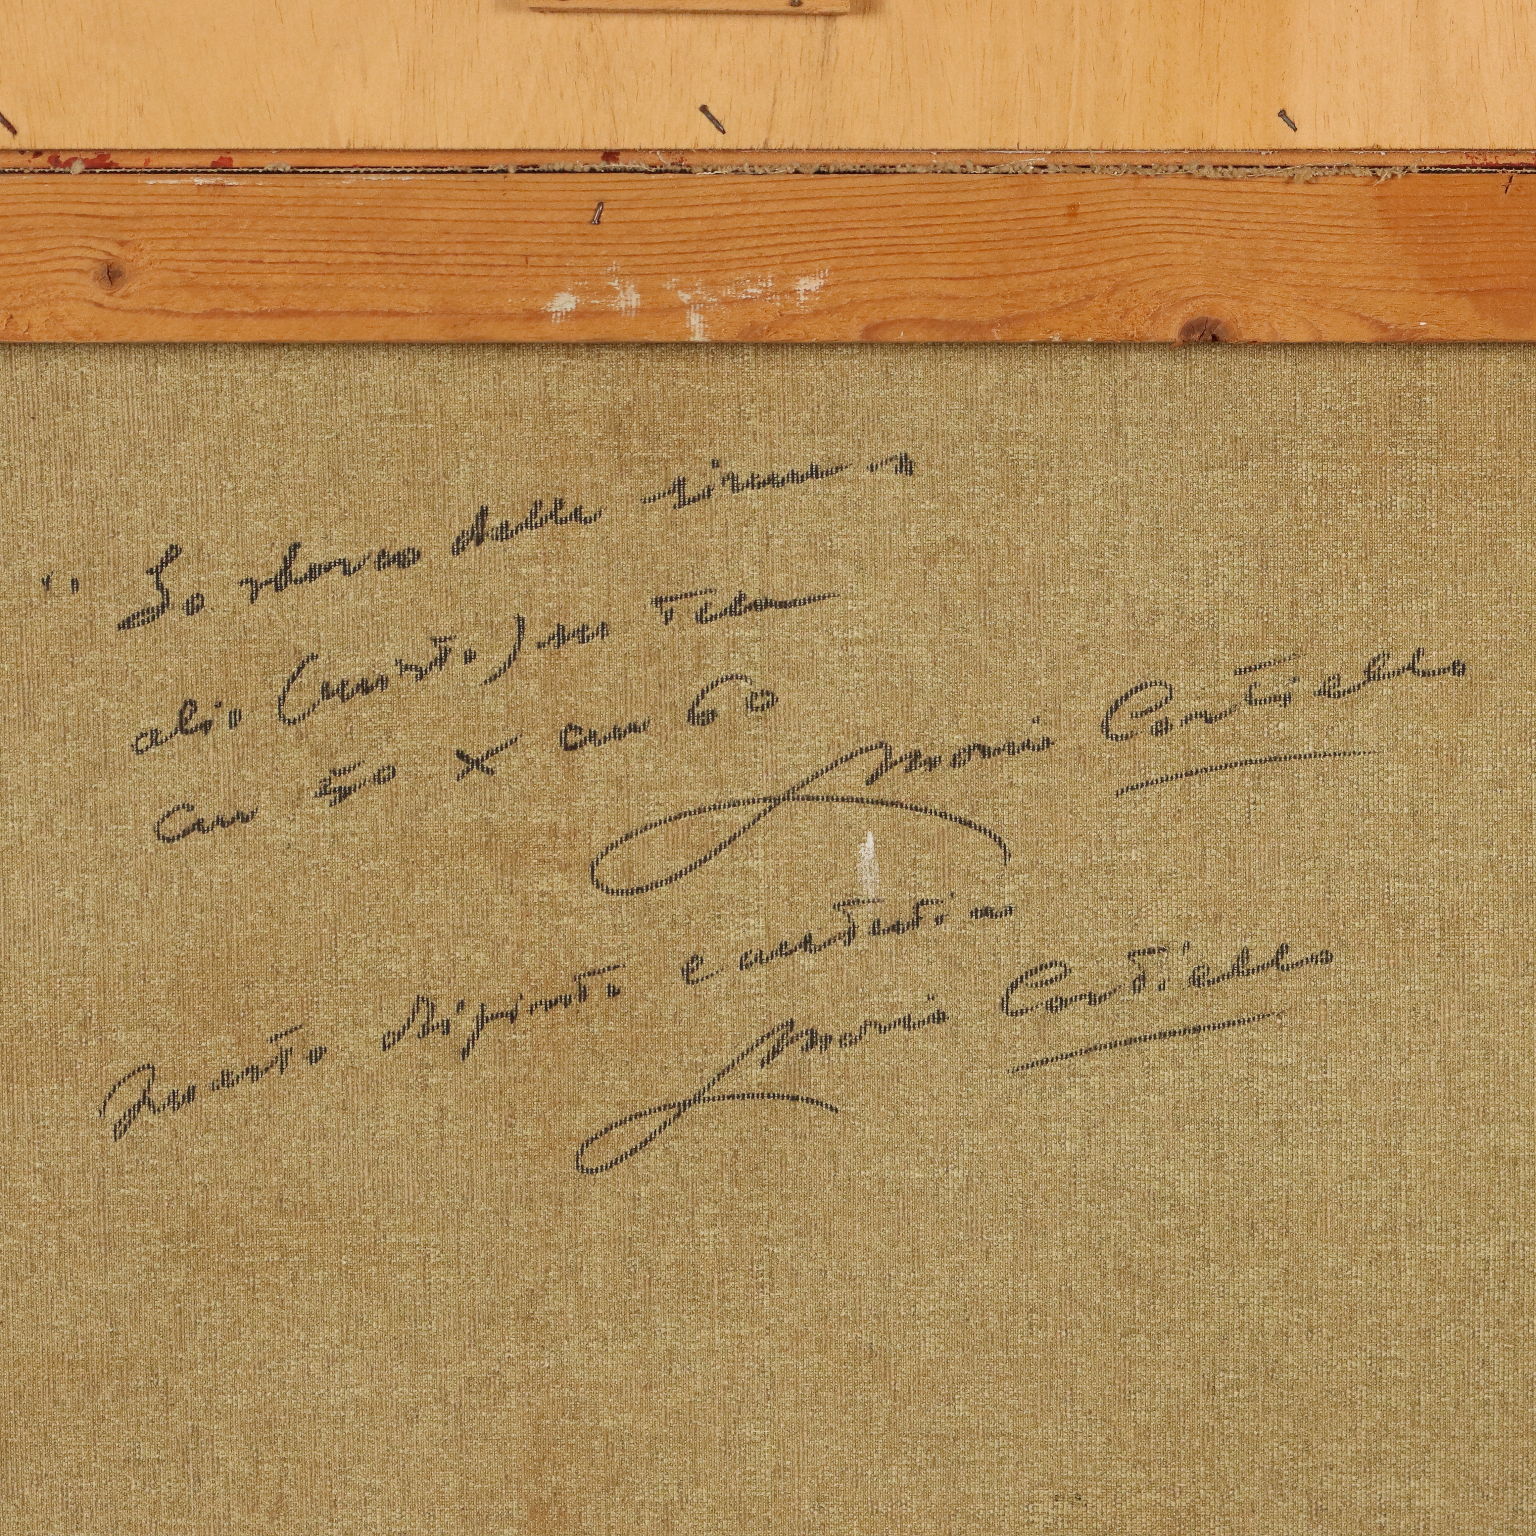 " Lo sbarco delle sirene "
olio (misto) su tela
cm 50 x cm 60
Mario Cortiello
Questo dipinto è autentico
Mario Cortiello